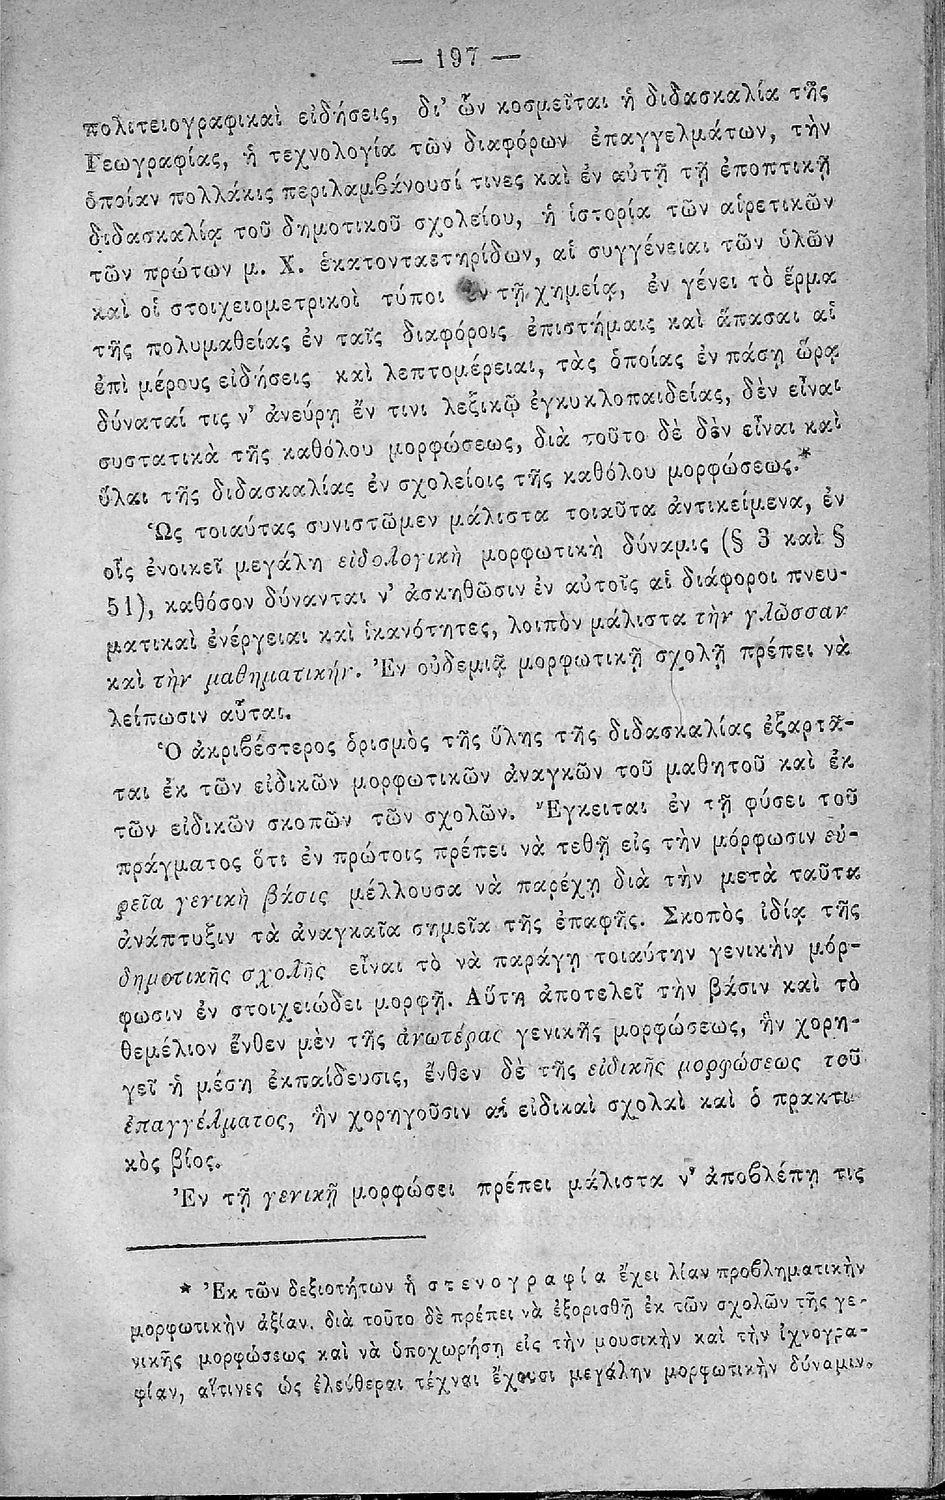 — 197 —
πολιτειογραφικαὶ εἰδήσεις, δι' ὧν κοσμεῖται ἡ διδασκαλία τῆς
Γεωγραφίας, ἡ τεχνολογία τῶν διαφόρων ἐπαγγελμάτων, τὴν
ὁποίαν πολλάκις περιλαμβάνουσί τινες καὶ ἐν αὐτῇ τῇ ἐποπτικῇ
διδασκαλίᾳ τοῦ δημοτικοῦ σχολείου, ἡ ἱστορία τῶν αἱρετικῶν
τῶν πρώτων μ. Χ. ἑκατονταετηρίδων, αἱ συγγένειαι τῶν ὑλῶν
καὶ οἱ στοιχειομετρικοὶ τύποι ἐν τῇ χημείᾳ, ἐν γένει τὸ ἕρμα
τῆς πολυμαθείας ἐν ταῖς διαφόροις ἐπιστήμαις καὶ ἅπασαι αἱ
ἐπὶ μέρους εἰδήσεις καὶ λεπτομέρειαι, τὰς ὁποίας ἐν πάσῃ ὥρᾳ
δύναταί τις ν' ἀνεύρῃ ἔν τινι λεξικῷ ἐγκυκλοπαιδείας, δὲν εἶναι
συστατικὰ τῆς καθόλου μορφώσεως, διὰ τοῦτο δὲ δὲν εἶναι καὶ
ὗλαι τῆς διδασκαλίας ἐν σχολείοις τῆς καθόλου μορφώσεως.*
Ὡς τοιαύτας συνιστῶμεν μάλιστα τοιαῦτα ἀντικείμενα, ἐν
οἷς ἐνοικεῖ μεγάλη εἰδολογικὴ μορφωτικὴ δύναμις (§ 3 καὶ §
51), καθόσον δύνανται ν' ἀσκηθῶσιν ἐν αὐτοῖς αἱ διάφοροι πνευ-
ματικαὶ ἐνέργειαι καὶ ἱκανότητες, λοιπὸν μάλιστα τὴν γλῶσσαν
καὶ τὴν μαθηματικήν. Ἐν οὐδεμιᾷ μορφωτικῇ σχολῇ πρέπει νὰ
λείπωσιν αὗται.
Ὁ ἀκριβέστερος ὁρισμὸς τῆς ὕλης τῆς διδασκαλίας ἐξαρτᾶ-
ται ἐκ τῶν εἰδικῶν μορφωτικῶν ἀναγκῶν τοῦ μαθητοῦ καὶ ἐκ
τῶν εἰδικῶν σκοπῶν τῶν σχολῶν. Ἔγκειται ἐν τῇ φύσει τοῦ
πράγματος ὅτι ἐν πρώτοις πρέπει νὰ τεθῇ εἰς τὴν μόρφωσιν εὐ-
ρεῖα γενικὴ βάσις μέλλουσα νὰ παρέχῃ διὰ τὴν μετὰ ταῦτα
ἀνάπτυξιν τὰ ἀναγκαῖα σημεῖα τῆς ἐπαφῆς. Σκοπὸς ἰδίᾳ τῆς
δημοτικῆς σχολῆς εἶναι τὸ νὰ παράγῃ τοιαύτην γενικὴν μόρ-
φωσιν ἐν στοιχειώδει μορφῇ. Αὕτη ἀποτελεῖ τὴν βάσιν καὶ τὸ
θεμέλιον ἔνθεν μὲν τῆς ἀνωτέρας γενικῆς μορφώσεως, ἣν χορη-
γεῖ ἡ μέση ἐκπαίδευσις, ἔνθεν δὲ τῆς εἰδικῆς μορφώσεως τοῦ
ἐπαγγέλματος, ἣν χορηγοῦσιν αἱ εἰδικαὶ σχολαὶ καὶ ὁ πρακτι-
κὸς βίος.
Ἐν τῇ γενικῇ μορφώσει πρέπει μάλιστα ν' ἀποβλέπῃ τις
* Ἐκ τῶν δεξιοτήτων ἡ στενογραφία ἔχει λίαν προβληματικὴν
μορφωτικὴν ἀξίαν. διὰ τοῦτο δὲ πρέπει νὰ ἐξορισθῇ ἐκ τῶν σχολῶν τῆς γε-
νικῆς μορφώσεως καὶ νὰ ὑποχωρήσῃ εἰς τὴν μουσικὴν καὶ τὴν ἰχνογρα-
φίαν, αἵτινες ὡς ἐλεύθεραι τέχναι ἔχουσι μεγάλην μορφωτικὴν δύναμιν.